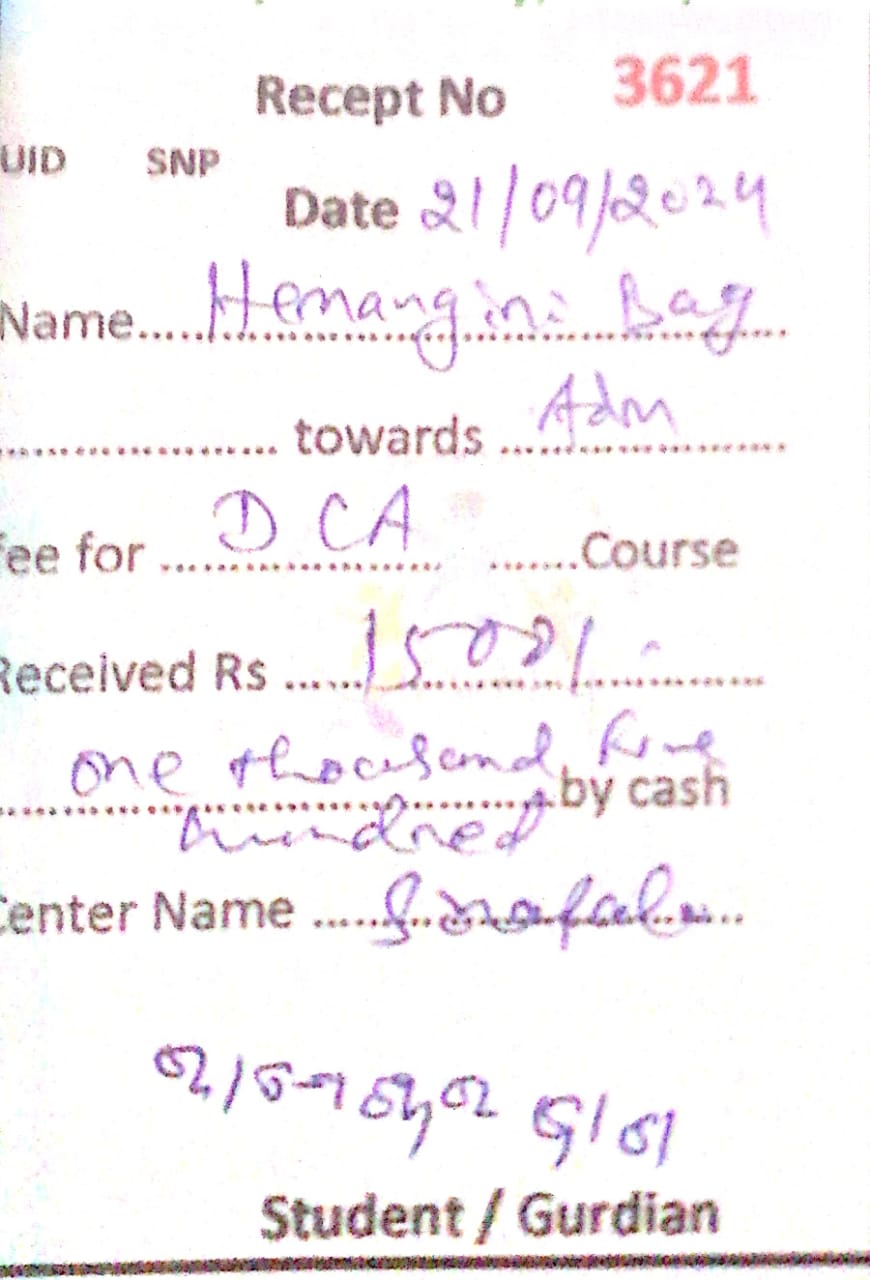 Recept No 3621
UID SNP
Date 21/09/2024
Name..... Hemangini Bag
.................... towards ... Adm
ee for ..... D CA ..... Course
Received Rs ..... 1500/-
one thousand five
by cash
hundred
Center Name ..... Sinapali
Student / Gurdian